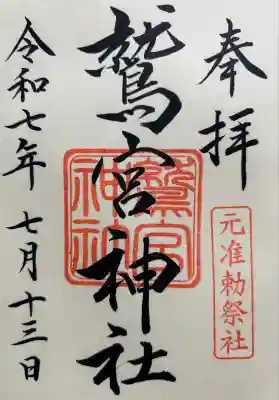 奉拝
元准勅祭社
鷲宮神社
鷲宮神社
令和七年 七月十三日